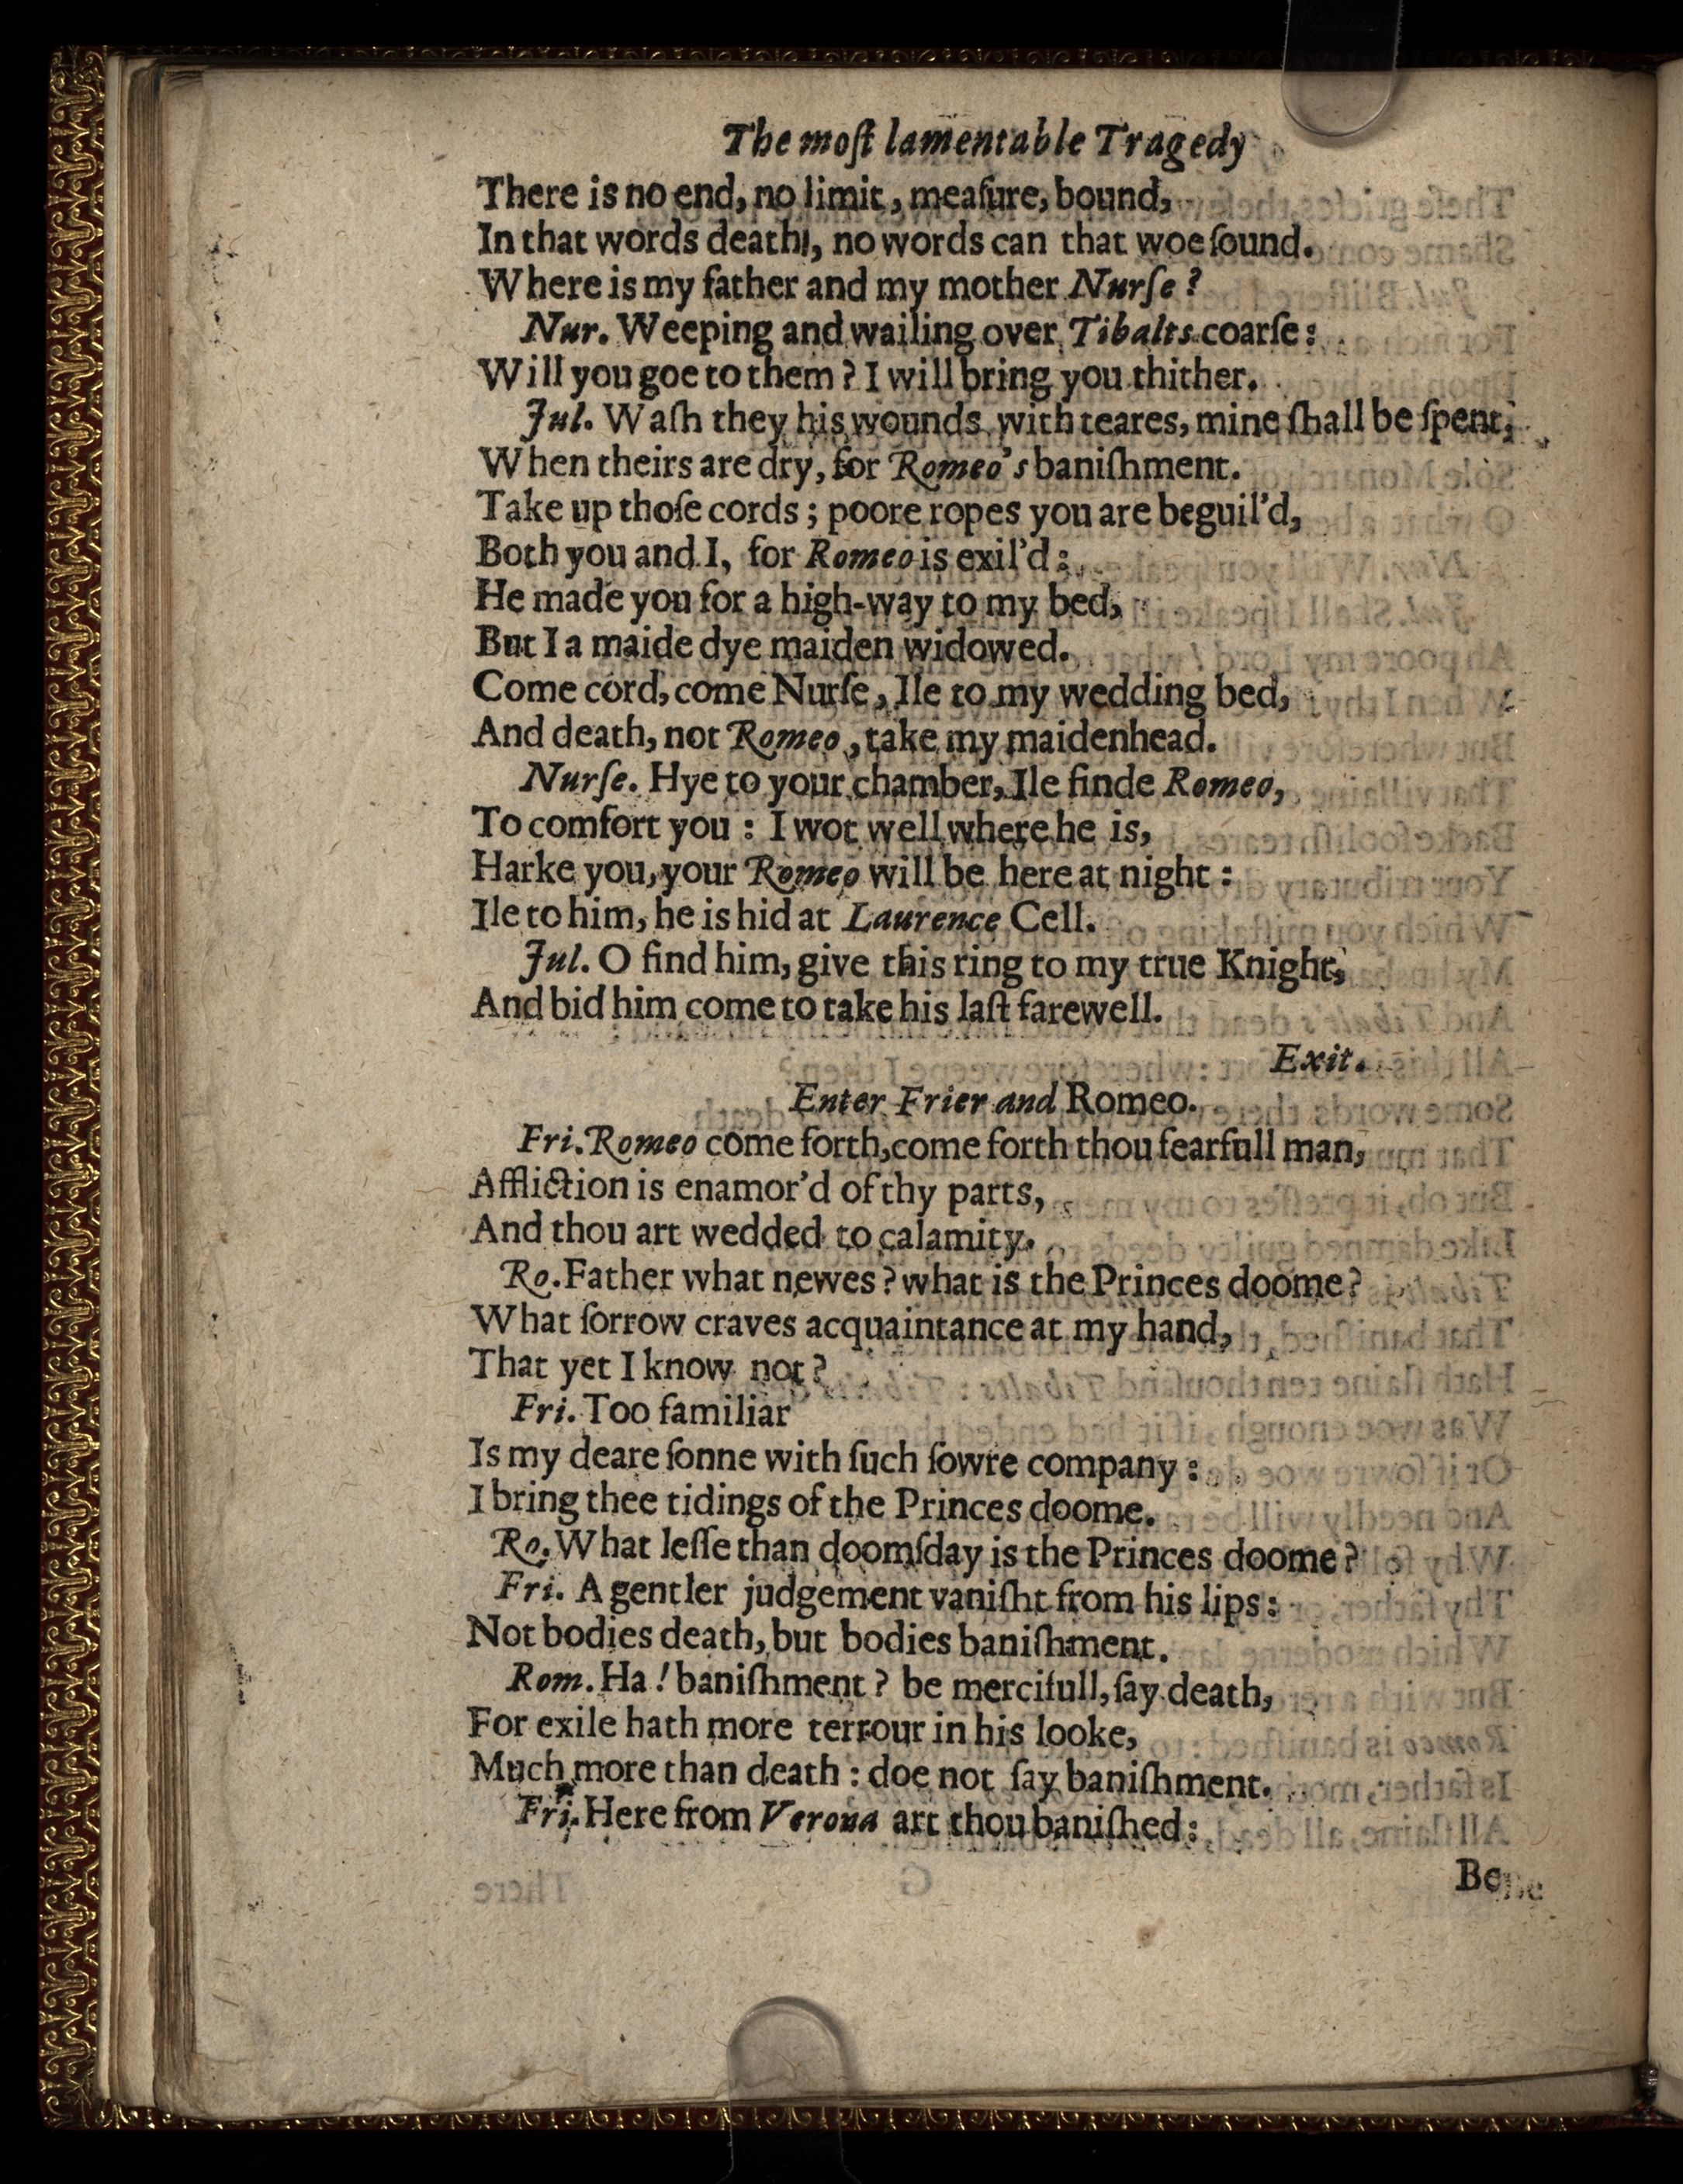 The moſt lamentable Tragedy
There is no end, no limit, meaſure, bound,
In that words death, no words can that woe ſound.
Where is my father and my mother Nurſe?
Nur. Weeping and wailing over Tibalts coarſe:
Will you goe to them? I will bring you thither.
Jul. Waſh they his wounds with teares, mine ſhall be ſpent,
When theirs are dry, for Romeo's baniſhment.
Take up thoſe cords; poore ropes you are beguil'd,
Both you and I, for Romeo is exil'd:
He made you for a high-way to my bed,
But I a maide dye maiden widowed.
Come cord, come Nurſe, Ile to my wedding bed,
And death, not Romeo, take my maidenhead.
Nurſe. Hye to your chamber, Ile finde Romeo,
To comfort you: I wot well where he is,
Harke you, your Romeo will be here at night:
Ile to him, he is hid at Laurence Cell.
Jul. O find him, give this ring to my true Knight,
And bid him come to take his laſt farewell.
Exit.
Enter Frier and Romeo.
Fri. Romeo come forth, come forth thou fearfull man,
Affliction is enamor'd of thy parts,
And thou art wedded to calamity.
Ro. Father what newes? what is the Princes doome?
What ſorrow craves acquaintance at my hand,
That yet I know not?
Fri. Too familiar
Is my deare ſonne with ſuch ſowre company:
I bring thee tidings of the Princes doome.
Ro. What leſſe than doomſday is the Princes doome?
Fri. A gentler judgement vaniſht from his lips:
Not bodies death, but bodies baniſhment.
Rom. Ha! baniſhment? be mercifull, ſay death,
For exile hath more terrour in his looke,
Much more than death: doe not ſay baniſhment.
Fri. Here from Verona art thou baniſhed:
Be